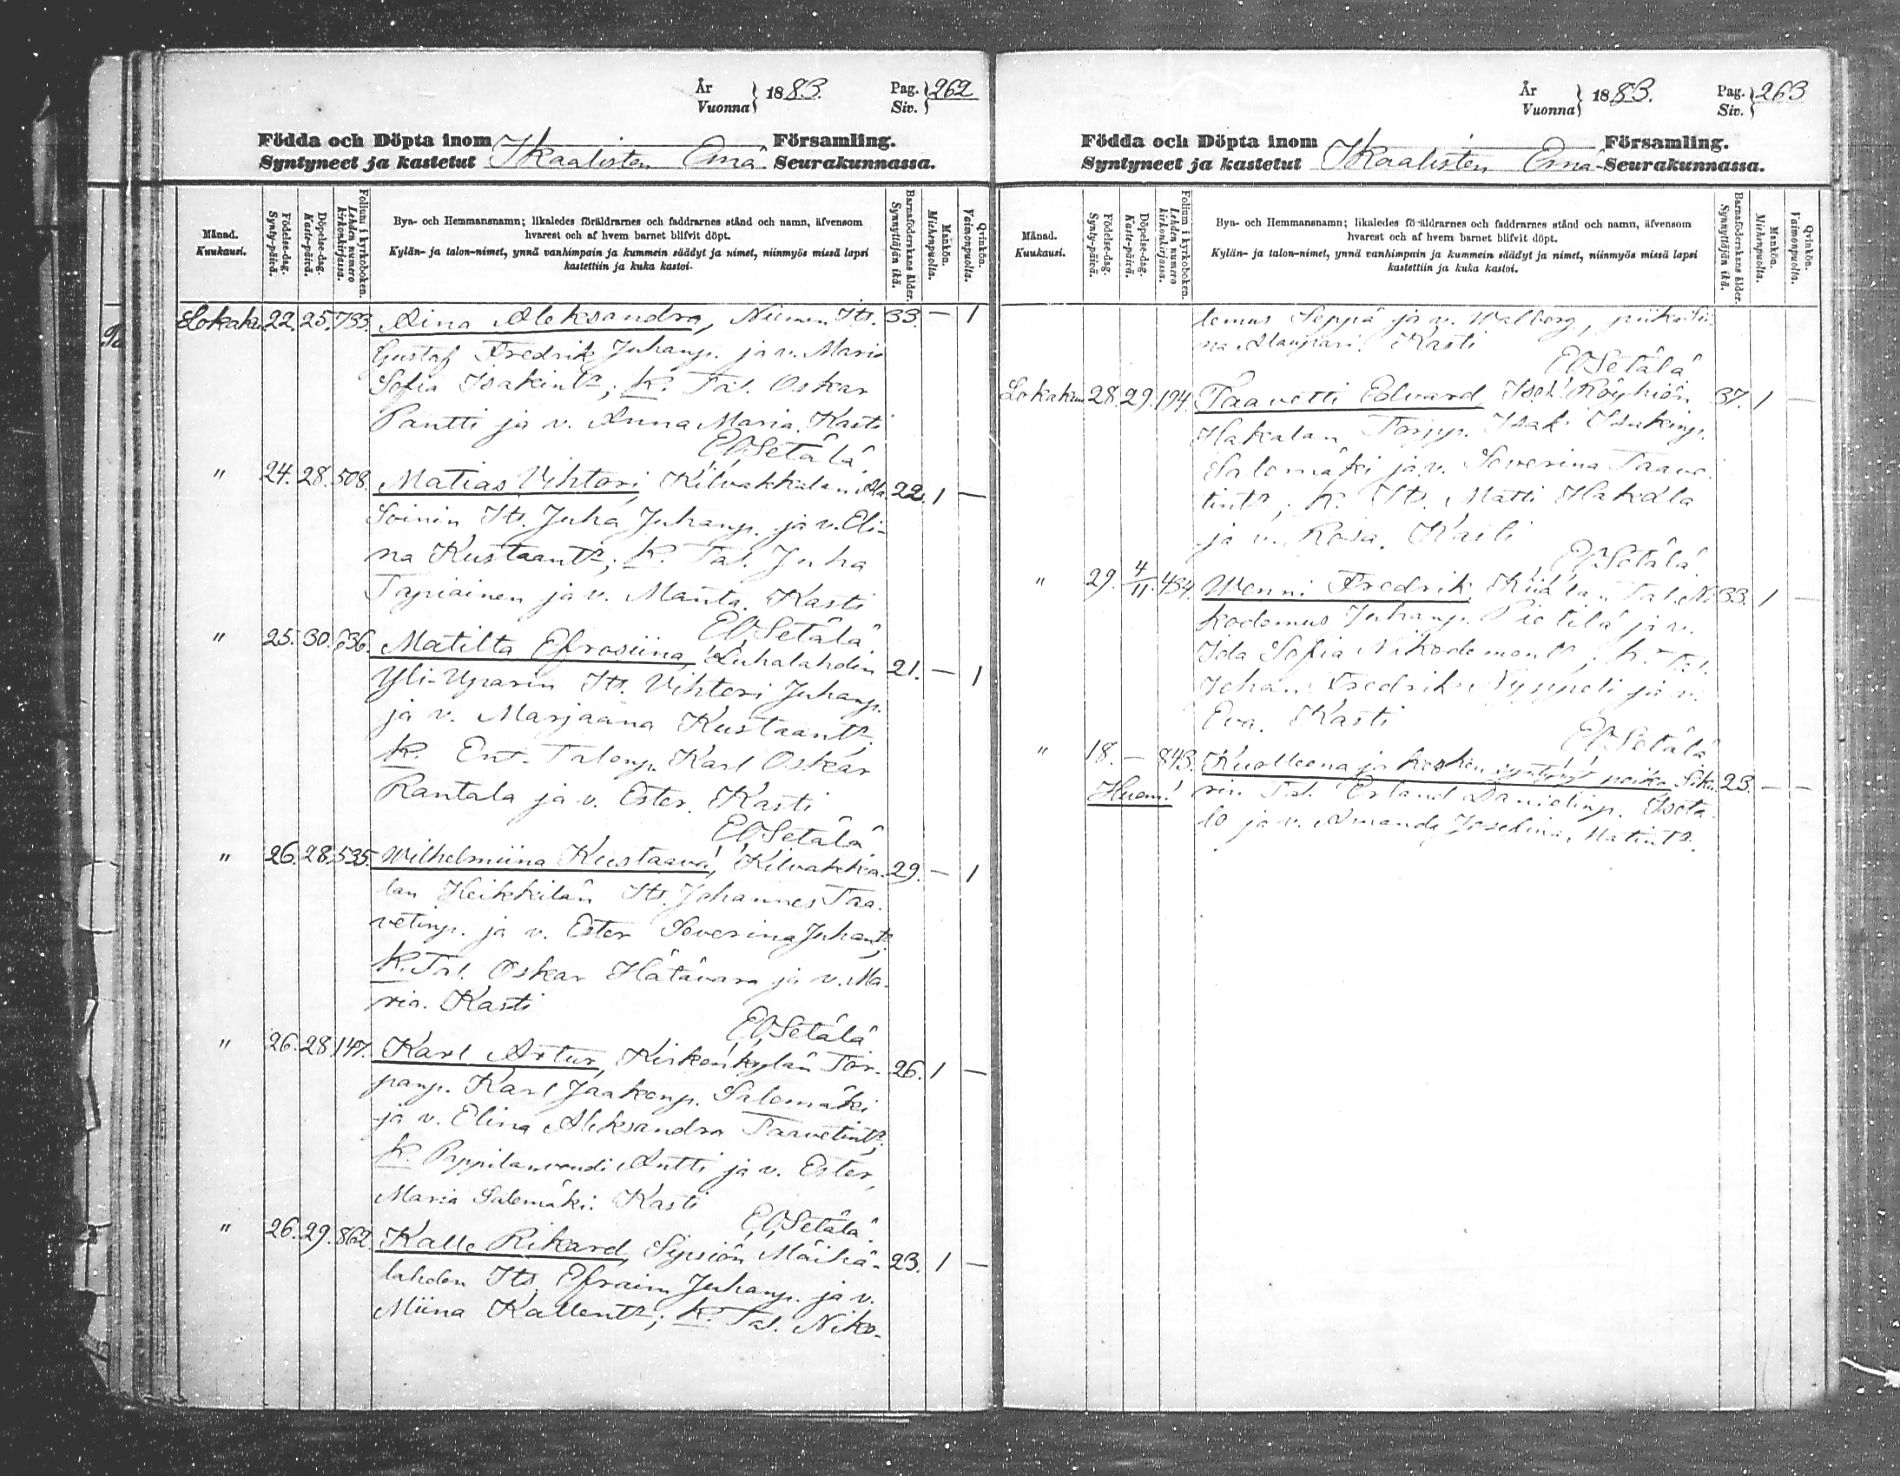 År
Vuonna } 1883.
Pag.
Siv. } 262
Födda och Döpta inom Församling.
Syntyneet ja kastetut Ikaalisten Emä Seurakunnassa.
Månad.
Kuukausi.
Födelse-dag.
Synty-päivä.
Döpelse-dag.
Kaste-päivä.
Folium i kyrkoboken.
Lehden numero kirkonkirjassa.
Bya- och Hemmansnamn; likaledes föräldrarnes och faddrarnes stånd och namn, äfvensom
hvarest och af hvem barnet blifvit döpt.
Kylän- ja talon-nimet, ynnä vanhimpain ja kummein säädyt ja nimet, niinmyös missä lapsi
kastettiin ja kuka kastoi.
Barnaföderskans ålder.
Synnyttäjän ikä.
Mankön.
Miehenpuolta.
Qvinkön.
Vaimonpuolta.
Lokaku 22. 25. 733. Aina Aleksandra, Niemen Its. 33. — 1
Gustaf Fredrik Juhanp. ja v. Maria
Sofia Isakintr; K. Tal. Oskar
Pantti ja v. Anna Maria. Kasti
EOSetälä.
" 24. 28. 508. Matias Vihtori, Kilvakkalan Ala 22. 1 —
Soinin Its. Juha Juhanp. ja v. Eli-
na Kustaantr; K. Tal. Juha
Tapiainen ja v. Manta. Kasti
EOSetälä.
" 25. 30. 636. Matilta Efrosiina, Luhalahden 21. — 1
Yli-Uparin Its. Vihtori Juhanp.
ja v. Marjaana Kustaantr
K. Ent. Talonp. Karl Oskar
Rantala ja v. Ester. Kasti
EOSetälä
" 26. 28. 535. Wilhelmiina Kustaava, Kilvakka- 29. — 1
lan Heikkilän Its. Johannes Taa-
vetinp. ja v. Ester Severina Juhantr;
K. Tal. Oskar Hätävara ja v. Ma-
ria. Kasti
EOSetälä
" 26. 28. 147. Karl Artur, Kirkonkylän Tor- 26. 1 —
panp. Karl Jaakonp. Salomäki
ja v. Elina Aleksandra Taavetintr;
K. Pappilanvouti Antti ja v. Ester,
Maria Salomäki. Kasti
EOSetälä.
" 26. 29. 862. Kalle Rikard, Sipsiön Mäihä- 23. 1 —
lahden Its. Efraim Juhanp. ja v.
Miina Kallentr; K. Tal. Niko-
År
Vuonna } 1883.
Pag.
Siv. } 263
Födda och Döpta inom Församling.
Syntyneet ja kastetut Ikaalisten Emä Seurakunnassa.
Månad.
Kuukausi.
Födelse-dag.
Synty-päivä.
Döpelse-dag.
Kaste-päivä.
Folium i kyrkoboken.
Lehden numero kirkonkirjassa.
Bya- och Hemmansnamn; likaledes föräldrarnes och faddrarnes stånd och namn, äfvensom
hvarest och af hvem barnet blifvit döpt.
Kylän- ja talon-nimet, ynnä vanhimpain ja kummein säädyt ja nimet, niinmyös missä lapsi
kastettiin ja kuka kastoi.
Barnaföderskans ålder.
Synnyttäjän ikä.
Mankön.
Miehenpuolta.
Qvinkön.
Vaimonpuolta.
demus Seppä ja v. Walborg, piika
Kasti
EOSetälä
Lokakuu 28. 29. 194. Taavetti Edvard, Ison Röyhiön 37. 1 —
Hakalan Torpp. Isak Isakinp.
Salomäki ja v. Severina Taave-
tintr; K. Its. Matti Hakala
ja v. Rosa. Kasti
EOSetälä.
" 29. 4/11. 434. Wenni Fredrik, Tal. Ni- 33. 1 —
kodemus Juhanp. Pietilä ja v.
Ida Sofia Nikodemontr; K. Tal.
Johan Fredrik Nyppeli ja v.
Eva. Kasti
EOSetälä
" 18. — 843. Kuolleena ja kesken syntynyt poika, Siku- 23. — —
Huom! rin Tal. Erland Danielinp. Isota-
lo ja v. Amanda Josefina Matintr.